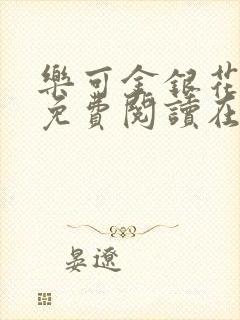 樂可金銀花
免費閱讀在
晏遼